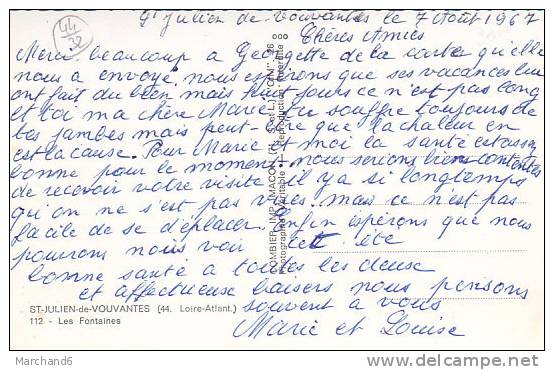 St Julien de Vouvantes le 7 Août 1967
44
32
Chères Amies
Merci beaucoup a Georgette de la carte qu'elle
nous a envoyé nous espérons que ses vacances lui
ont fait du bien mais huit jours ce n'est pas long
et toi ma chère Marie tu souffre toujours de
tes jambes mais peut-être que la chaleur en
est la cause. Pour Marie et moi la santé est assez
bonne pour le moment nous serions bien contentes
de recevoir votre visite il y a si longtemps
qu'on ne s'est pas vues mais ce n'est pas
facile de se déplacer Enfin espérons que nous
pourrons nous voir cet été
bonne santé a toutes les deuse
et affectueuse baisers nous pensons
souvent a vous
Marie et Louise
COMBIER IMP. MACON (S.-et-L.) "CIM"
Photographie Véritable - Reproduction Interdite
ST-JULIEN-de-VOUVANTES (44. Loire-Atlant.)
112 - Les Fontaines
Marchand6
delcampe.net